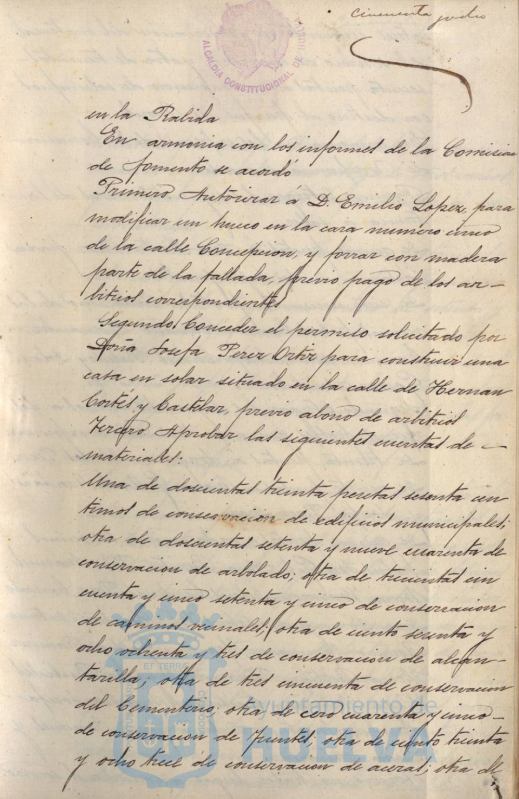 Cincuenta y ocho
ALCALDIA CONSTITUCIONAL DE
en la Rabida
En armonia con los informes de la Comision
de fomento se acordó
Primero. Autorizar á D. Emilio Lopez, para
modificar un hueco en la casa numero cinco
de la calle Concepcion, y forrar con madera
parte de la fallada, previo pago de los ar-
bitrios correspondientes
Segundo. Conceder el permiso solicitado por
Doña Josefa Perez Ortiz para construir una
casa en solar situado en la calle de Hernan
Cortés y Castelar, previo abono de arbitrios
Tercero. Aprobar las siguientes cuentas de —
materiales:
Una de doscientas treinta pesetas sesenta cen
timos de conservacion de edificios municipales;
otra de doscientas setenta y nueve cuarenta de
conservacion de arbolado; otra de trescientas cin
cuenta y cinco setenta y cinco de conservacion
de caminos vecinales; otra de ciento sesenta y
ocho ochenta y tres de conservacion de alcan-
tarilla; otra de tres cincuenta de conservacion
del Cementerio, otra de cero cuarenta y cinco —
de conservacion de Fuentes; otra de ciento treinta
y ocho trece de conservacion de aceras; otra de
Ayuntamiento de
HUELVA